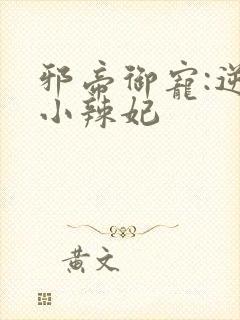 邪帝御寵:逆
小辣妃
黄文